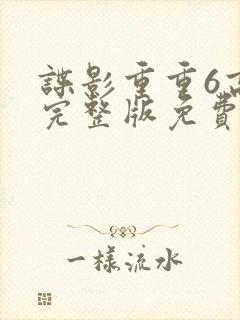 諜影重重6高
完整版免費
一樣流水